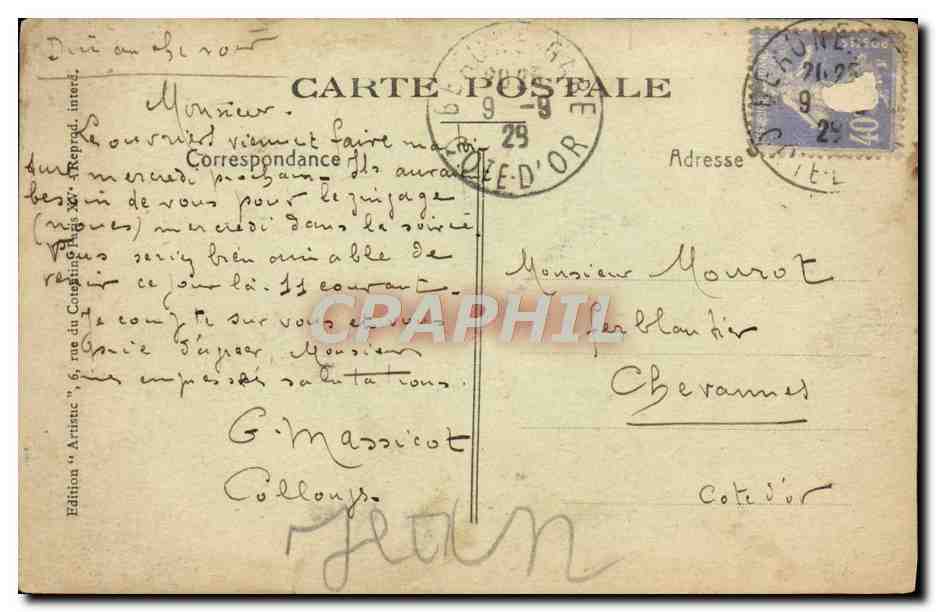 Dimanche soir
CARTE POSTALE
Correspondance
Adresse
Monsieur.
Le ouvriers viennet faire ma
sure mercredi prochain - Ils auraient
besoin de vous pour le zingage
(noues) mercredi dans la soirée.
Vous seriez bien aimable de
venir ce jour là. 11 courant.
Je compte sur vous et vous
prie d'agréer, Monsieur
mes empressés salutations.
G. Massicot
Collonges
Monsieur Mourot
ferblantier
Chevannes
Cote d'or
Jean
GARE
9 -9
29
COTE-D'OR
20 25
9
29
40
POSTES
Edition "Artistic", 6, rue du Cotentin, Paris XVe (Reprod. interd.
CRAPHIL